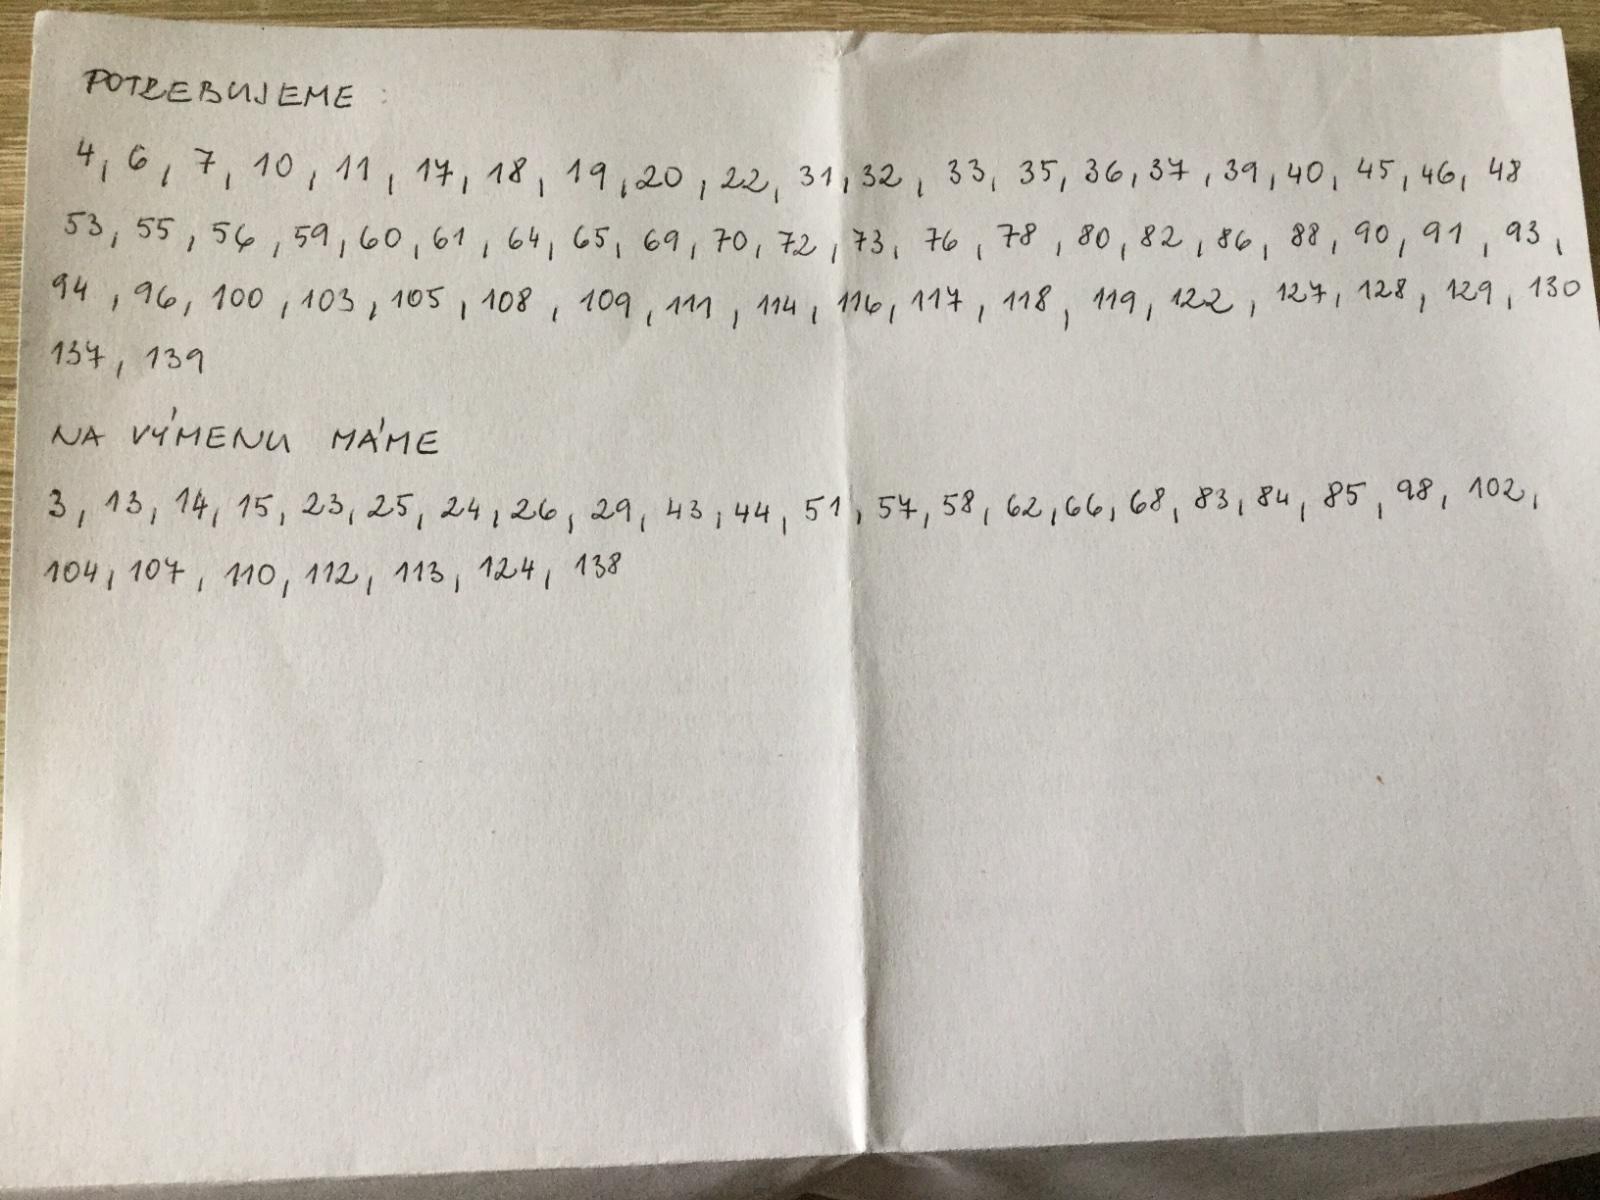 POTREBUJEME :
4, 6, 7, 10, 11, 17, 18, 19, 20, 22, 31, 32, 33, 35, 36, 37, 39, 40, 45, 46, 48
53, 55, 56, 59, 60, 61, 64, 65, 69, 70, 72, 73, 76, 78, 80, 82, 86, 88, 90, 91, 93,
94, 96, 100, 103, 105, 108, 109, 111, 114, 116, 117, 118, 119, 122, 127, 128, 129, 130
137, 139
NA VÝMENU MÁME
3, 13, 14, 15, 23, 25, 24, 26, 29, 43, 44, 51, 57, 58, 62, 66, 68, 83, 84, 85, 98, 102,
104, 107, 110, 112, 113, 124, 138